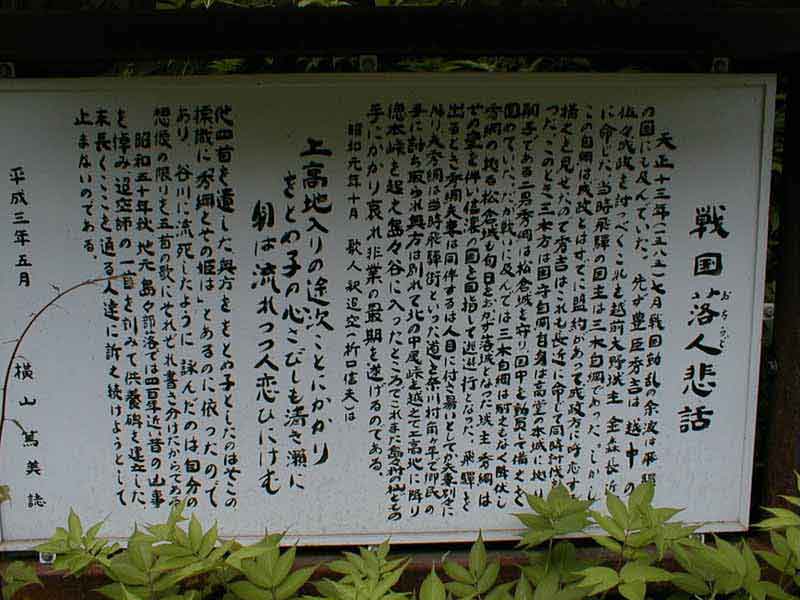 戦国落人悲話
おちうど
天正十三年(一五八五)七月戦国動乱の余波は飛騨
の国にも及んでいた。先ず豊臣秀吉は越中の
佐々成政を討つべくこれを越前大野城主金森長近
に命じた。当時飛騨の国主は三木自綱であった。しかし
この自綱は成政とはすでに盟約があって成政方に呼応する
構えを見せたので秀吉はこれも長近に命じて同時討伐
った。このとき三木方は国守自綱自身は高堂の本城に地り
嗣子である二男秀綱は松倉城を守り国中を動員して備えを
固めていた。だが戦いに及んでは三木自綱は耐えもなく降伏し
秀綱の地る松倉城も旬日をおかず落城となった。城主秀綱は
その室を伴い信濃の国を目指して逃避行となった。飛騨を
出るとき秀綱夫妻は同伴するは人目に付き易いとしてか夫妻別に
なり夫秀綱は当時飛騨街といった道を奈川村角ヶ平で郷民の
手に討ち取られ奥方は別れて北の中尾峠を越えて上高地に降り
徳本峠を越え島々谷に入ったところでこれまた島々の杣人の
手にかかり哀れ非業の最期を遂げるのである。
昭和元年十月 歌人釈迢空(折口信夫)は
上高地入りの途次ことにかかり
をとめ子の心さびしも清き瀬に
身は流れつつ人恋ひにけむ
他四首を遺した奥方ををとめ子としたのはそこの
標識に「秀綱とその姫は」とあるのに依ったので
あり、谷川に流死したように詠んだのは自分の
想像の限りを五首の歌にそれぞれ書き分けたからであ
昭和五十年秋 地元島々部落では四百年近い昔の山事
を悼み迢空師の一首を刻みて供養碑を建立した。
末長くここを通る人達に訴え続けようとして
止まないのである。
平成三年五月
横山篤美誌